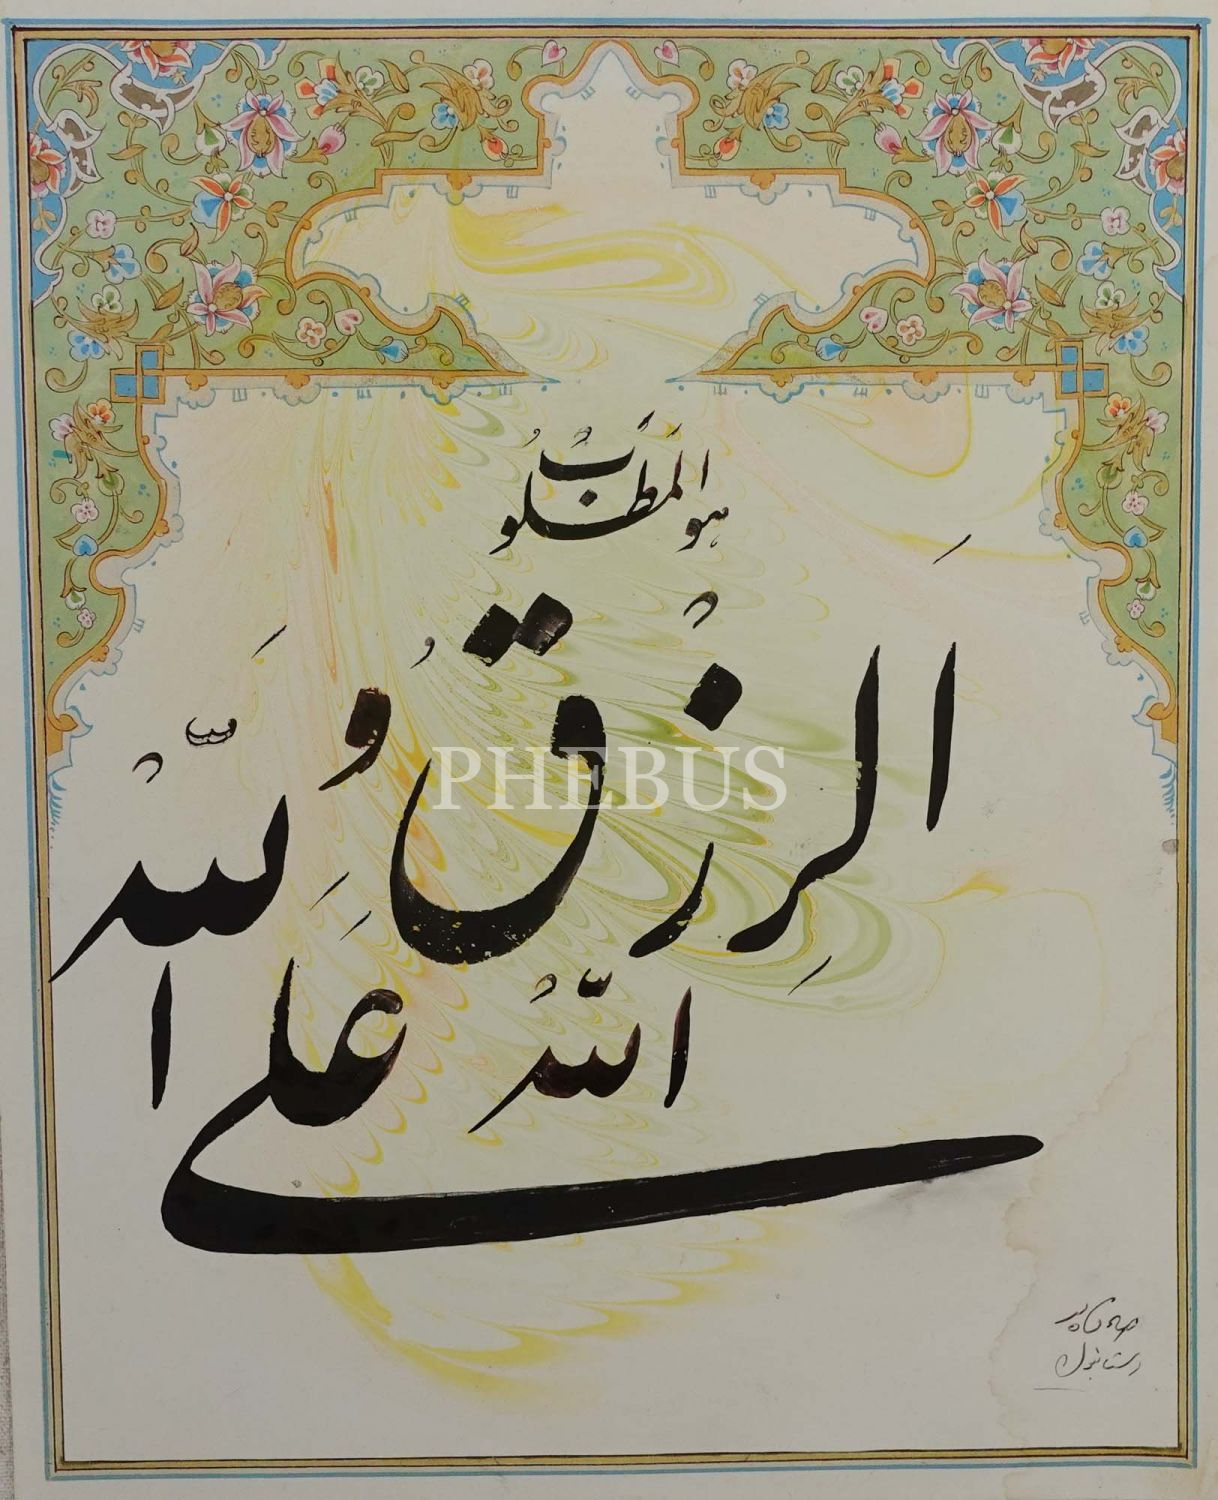 هوالمَطلُوبُ
اَلرِّزْقُ عَلَى اللّٰهِ
اللّٰه
PHEBUS
استانبول